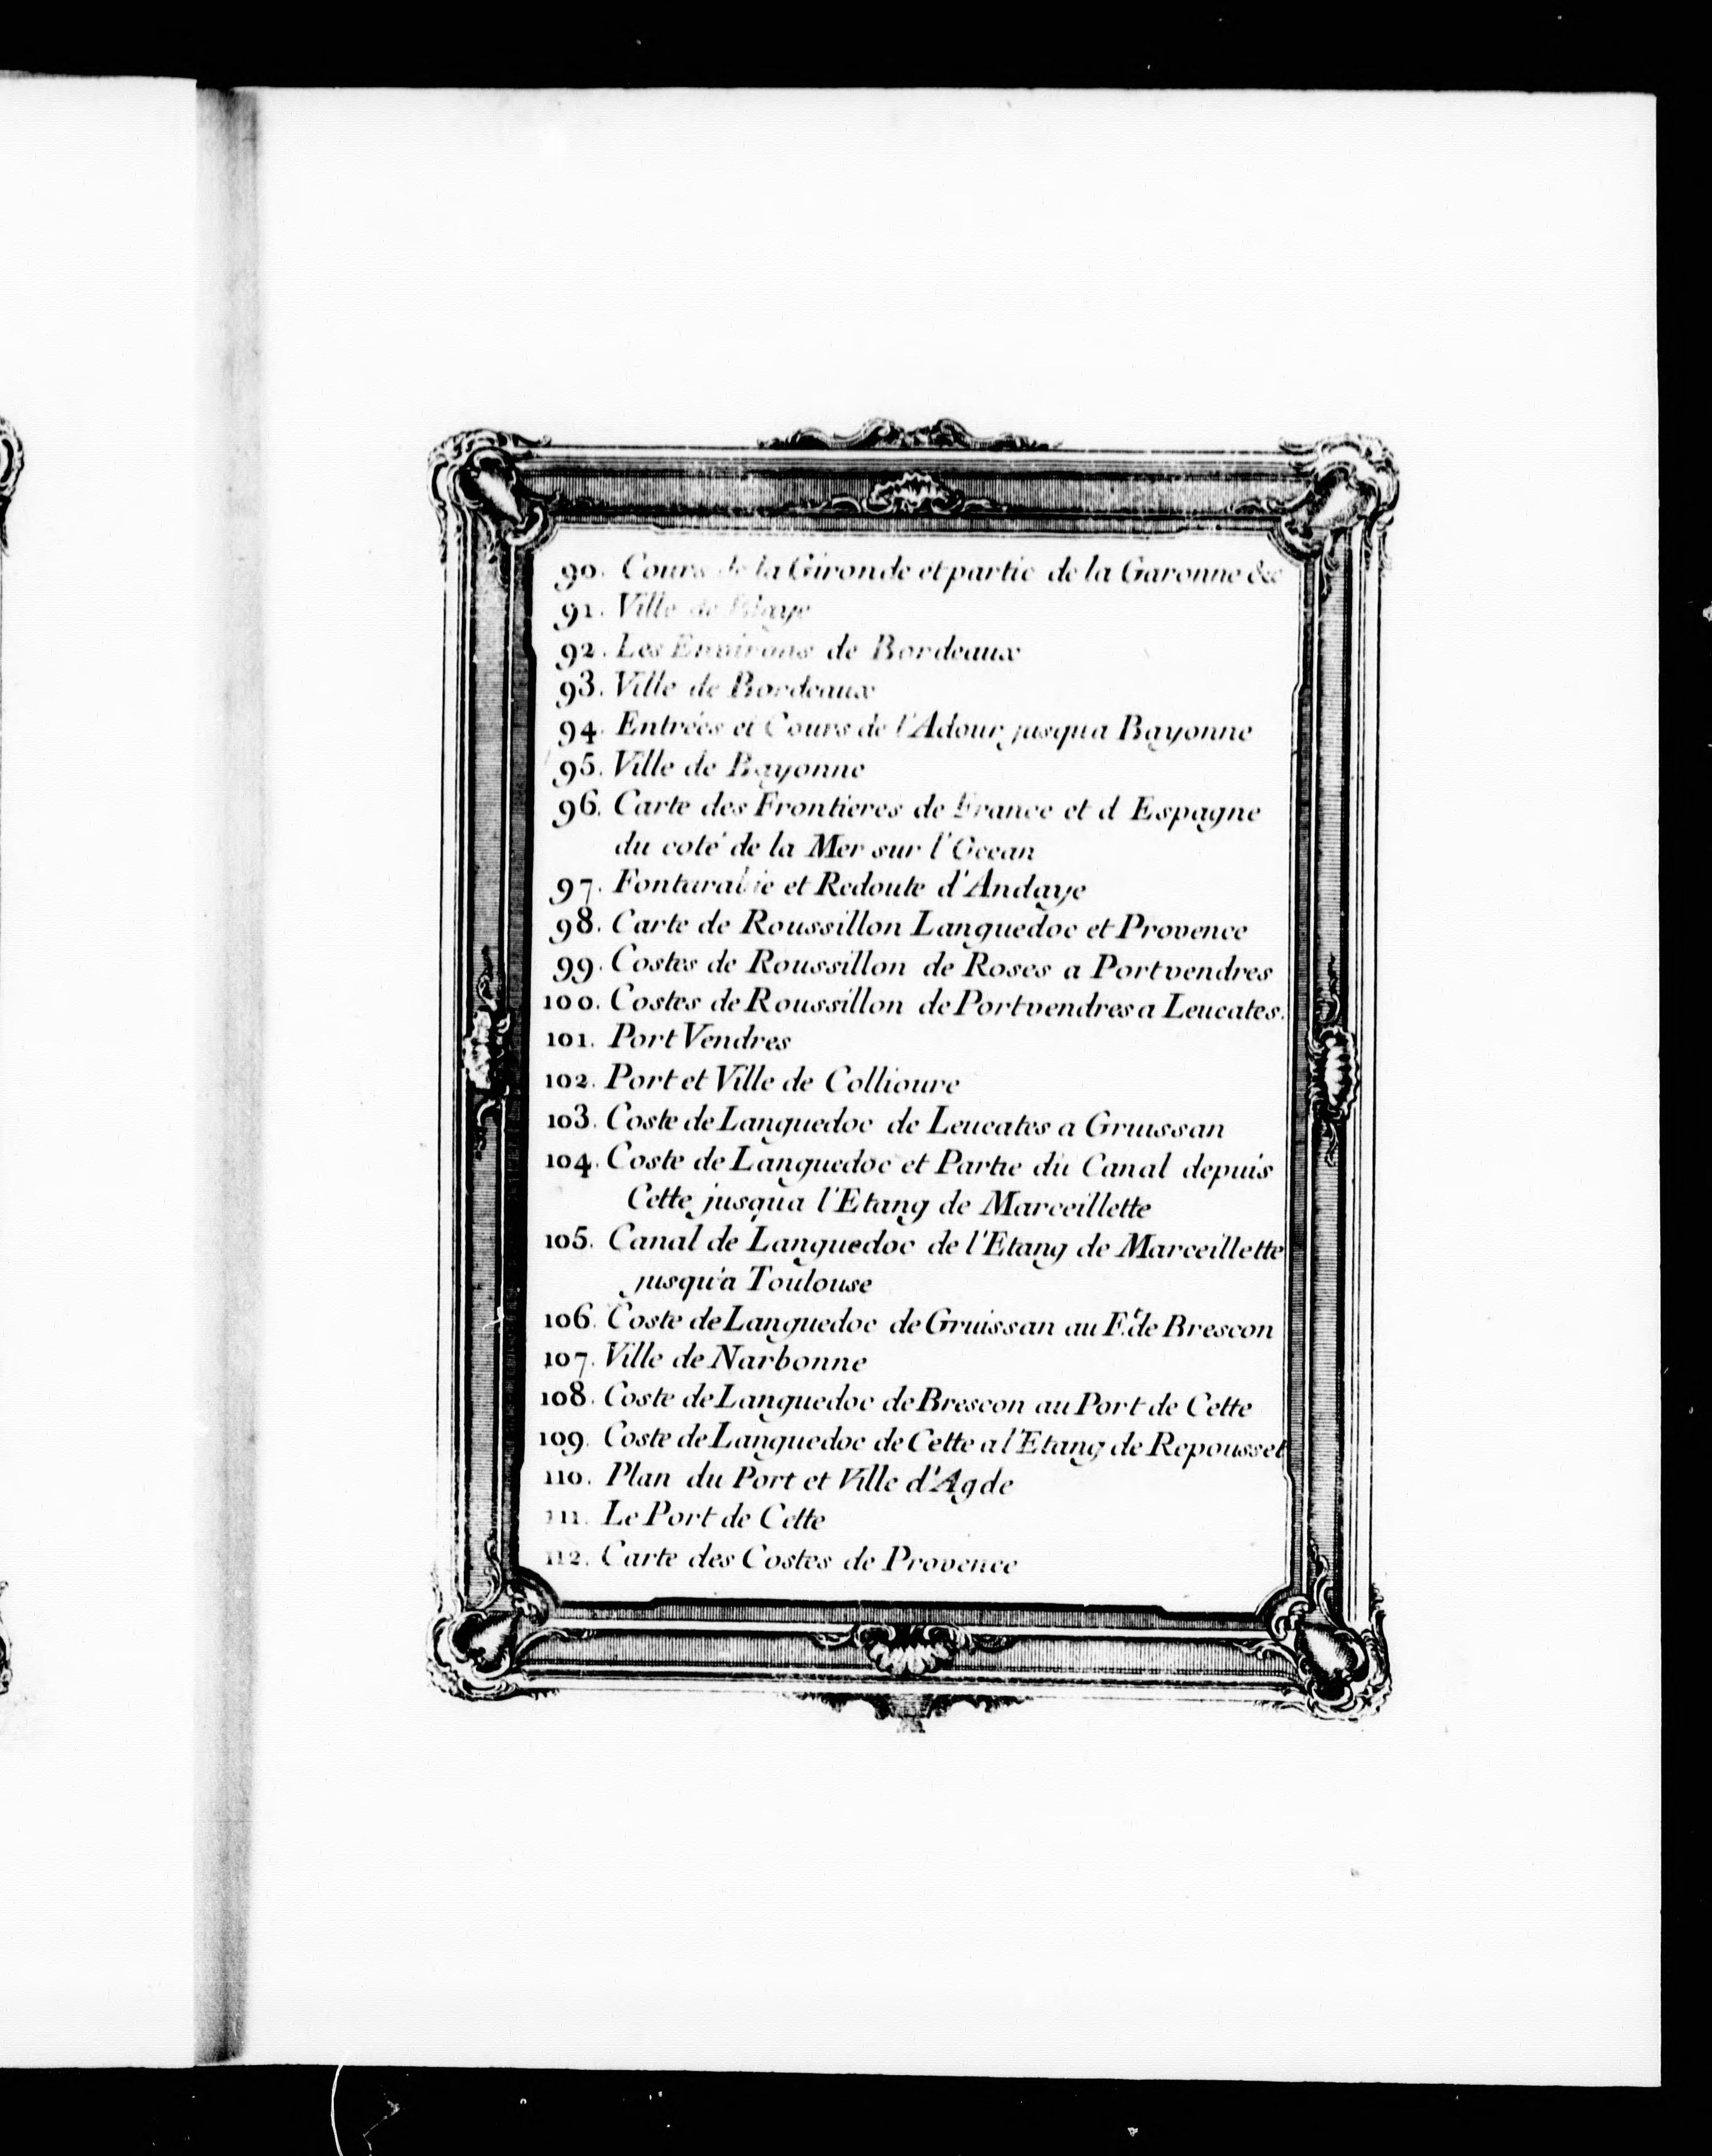 90. Cours de la Gironde et partie de la Garonne &c
91. Ville de Blaye
92. Les Environs de Bordeaux
93. Ville de Bordeaux
94. Entrées et Cours de l'Adour jusqua Bayonne
95. Ville de Bayonne
96. Carte des Frontieres de France et d Espagne
du coté de la Mer sur l'Ocean
97. Fontarabie et Redoute d'Andaye
98. Carte de Roussillon Languedoc et Provence
99. Costes de Roussillon de Roses a Portvendres
100. Costes de Roussillon de Portvendres a Leucates.
101. Port Vendres
102. Port et Ville de Collioure
103. Coste de Languedoc de Leucates a Gruissan
104. Coste de Languedoc et Partie du Canal depuis
Cette jusqua l'Etang de Marceillette
105. Canal de Languedoc de l'Etang de Marceillette
jusqu'a Toulouse
106. Coste de Languedoc de Gruissan au F.t de Brescon
107. Ville de Narbonne
108. Coste de Languedoc de Brescon au Port de Cette
109. Coste de Languedoc de Cette a l'Etang de Repousset
110. Plan du Port et Ville d'Agde
111. Le Port de Cette
112. Carte des Costes de Provence